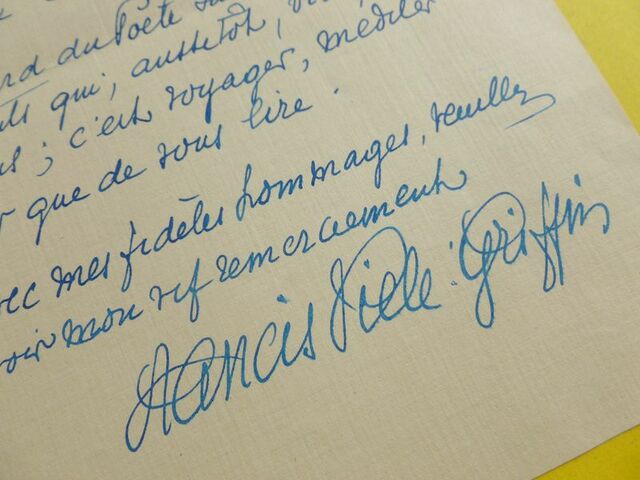 du Poète
qui, aussitôt,
; c'est voyager, méditer
que de vous lire.
mes fidèles hommages, veuillez
mon vif remerciement
Francis Vielé-Griffin